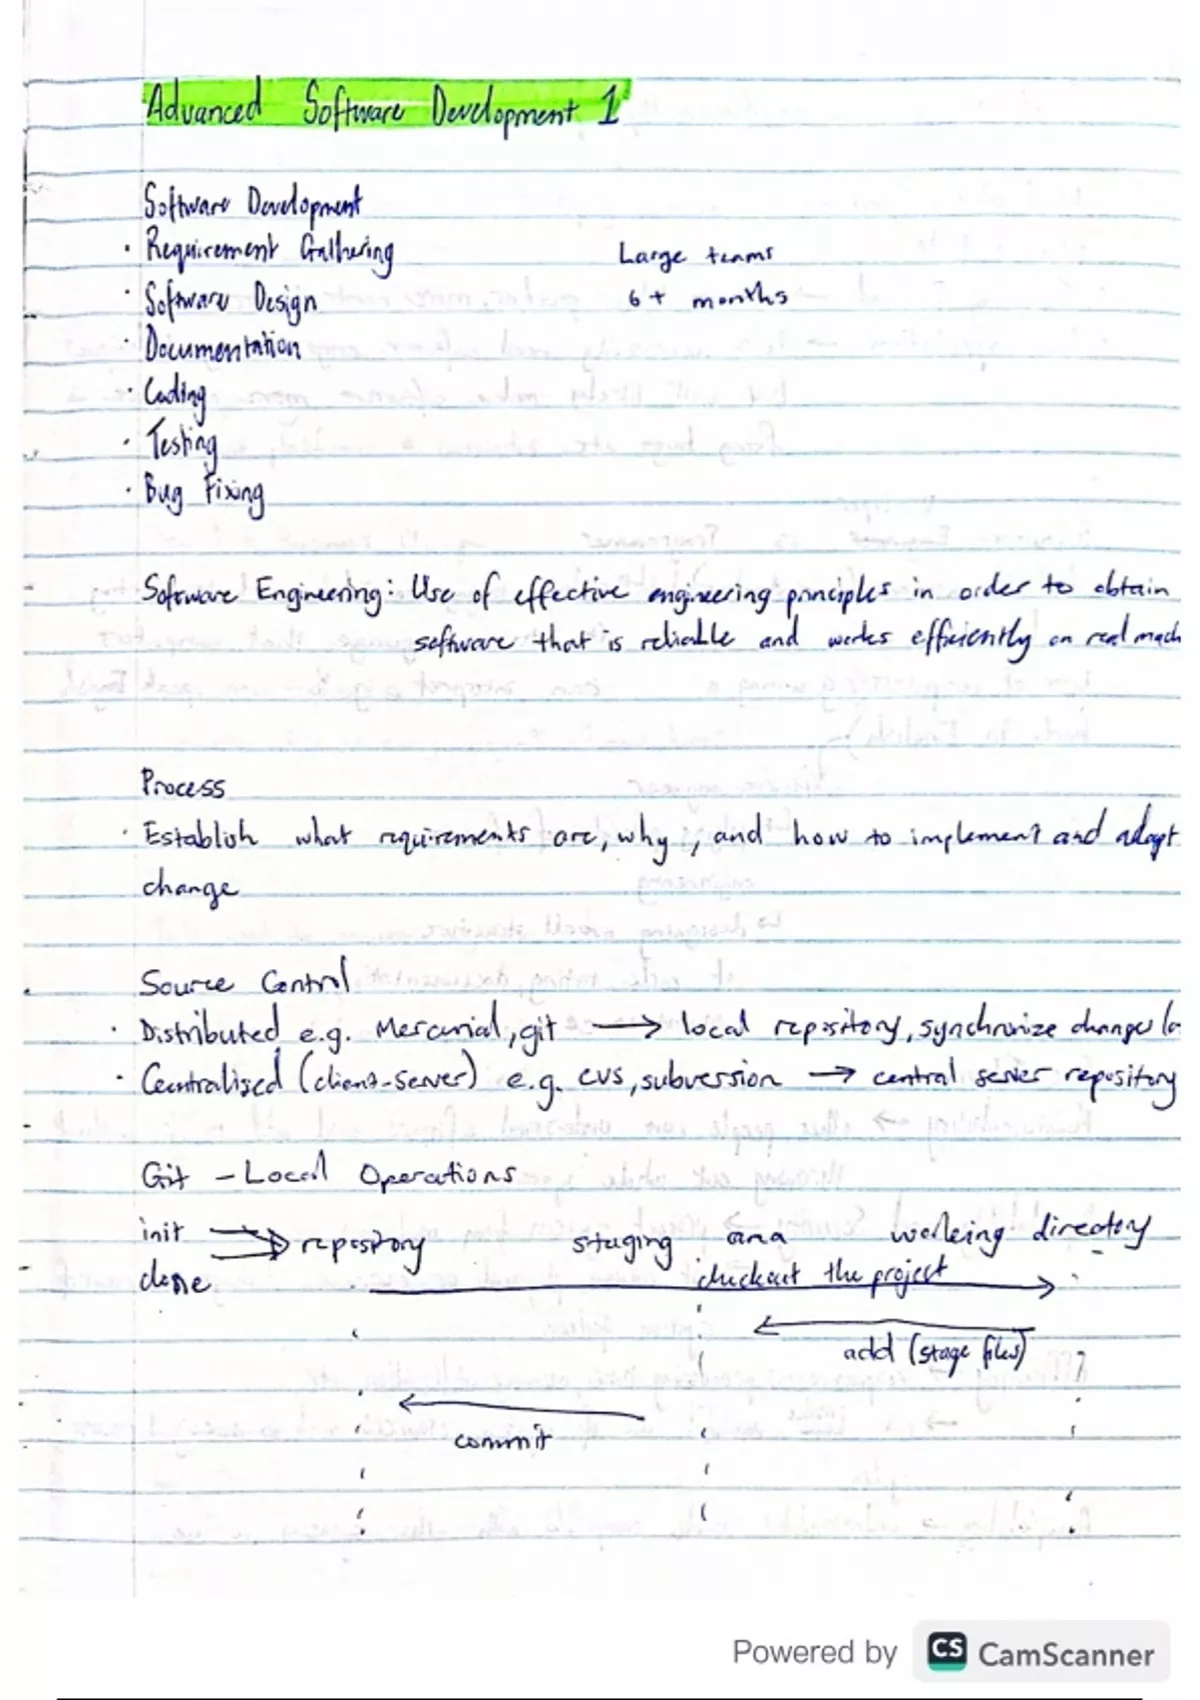 Advanced Software Development 1
Software Development
· Requirement Gathering Large teams
· Software Design 6+ months
· Documentation
· Coding
· Testing
· Bug Fixing
Software Engineering: Use of effective engineering principles in order to obtain
software that is reliable and works efficiently on real mach
Process
· Establish what requirements are, why, and how to implement and adapt
change
Source Control
· Distributed e.g. Mercurial, git → local repository, synchronize changes
· Centralised (client-server) e.g. CVS, subversion → central server repository
Git - Local Operations
init repository staging area working directory
clone checkout the project
add (stage files)
commit
Powered by CS CamScanner